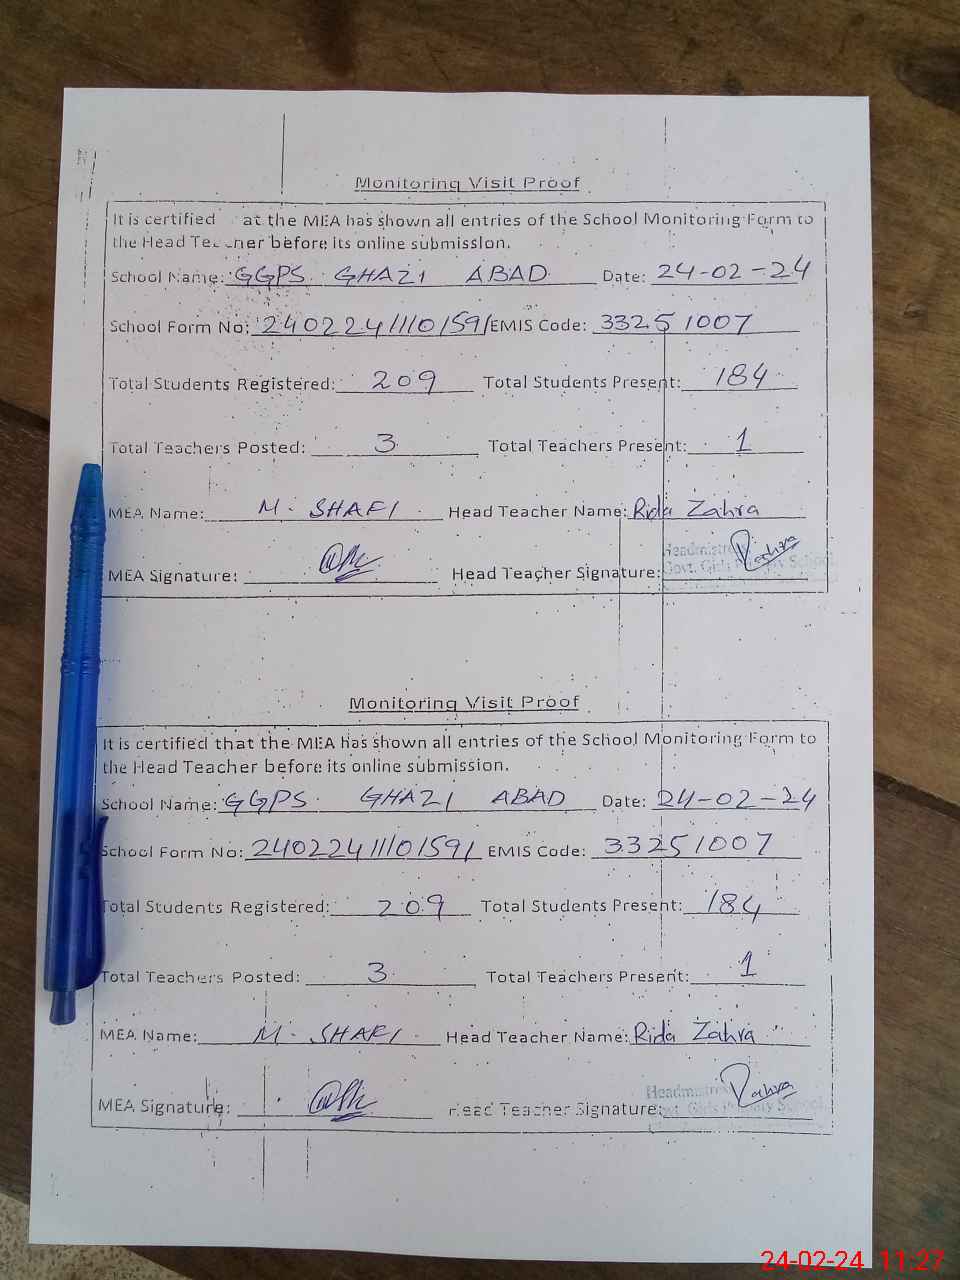 Monitoring Visit Proof
It is certified at the MEA has shown all entries of the School Monitoring Form to
the Head Teacher before its online submission.
School Name: GGPS GHAZI ABAD Date: 24-02-24
School Form No: 24022411110159/ EMIS Code: 33251007
Total Students Registered: 209 Total Students Present: 184
Total Teachers Posted: 3 Total Teachers Present: 1
MEA Name: M. SHAFI Head Teacher Name: Rida Zahra
MEA Signature: Head Teacher Signature: Zahra
Headmistress
Govt. Girls Primary School
Monitoring Visit Proof
It is certified that the MEA has shown all entries of the School Monitoring Form to
the Head Teacher before its online submission.
School Name: GGPS GHAZI ABAD Date: 24-02-24
School Form No: 24022411110159/ EMIS Code: 33251007
Total Students Registered: 209 Total Students Present: 184
Total Teachers Posted: 3 Total Teachers Present: 1
MEA Name: M. SHAFI Head Teacher Name: Rida Zahra
MEA Signature: Head Teacher Signature: Zahra
Headmistress
Govt. Girls Primary School
24-02-24 11:27